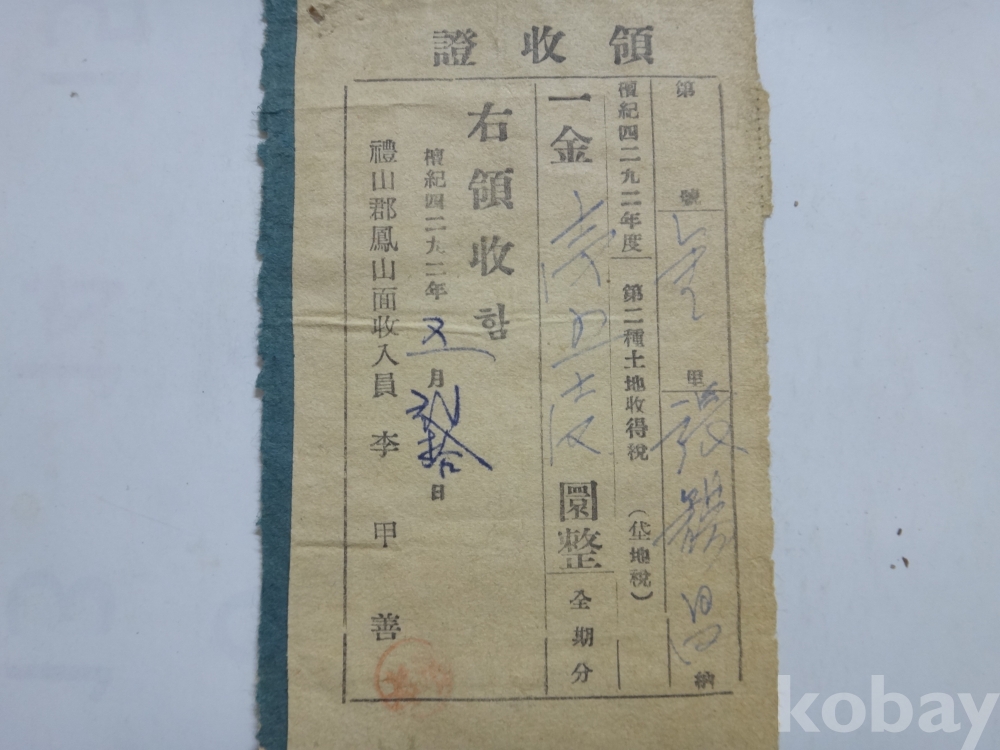 領收證
第 號 里 納
檀紀四二九二年度 第二種土地收得稅 (垈地稅)
一金 圜整 全期分
右領收함
檀紀四二九二年 五月 拾日
禮山郡鳳山面收入員 李甲善
kobay